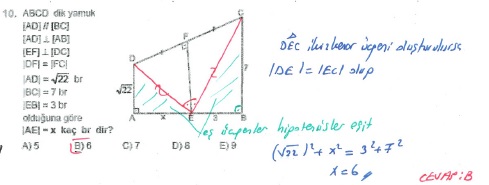 10. ABCD dik yamuk
[AD] // [BC]
[AD] ⊥ [AB]
[EF] ⊥ [DC]
|DF| = |FC|
|AD| = √22 br
|BC| = 7 br
|EB| = 3 br
olduğuna göre
|AE| = x kaç br dir?
A) 5 B) 6 C) 7 D) 8 E) 9
C
F
D
√22
7
A x E 3 B
DEC ikizkenar üçgeni oluşturulursa
|DE| = |EC| olup
eş üçgenler hipotenüsler eşit
(√22)² + x² = 3² + 7²
x = 6
CEVAP: B